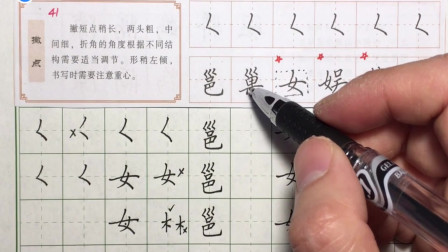 41
撇点
撇短点稍长，两头粗，中
间细，折角的角度根据不同结
构需要适当调节。形稍左倾，
书写时需要注意重心。
く く く く く く く
邕 巢 女 娱
く く く く 邕
く く 女 女 邕
女 木 木 邕 女